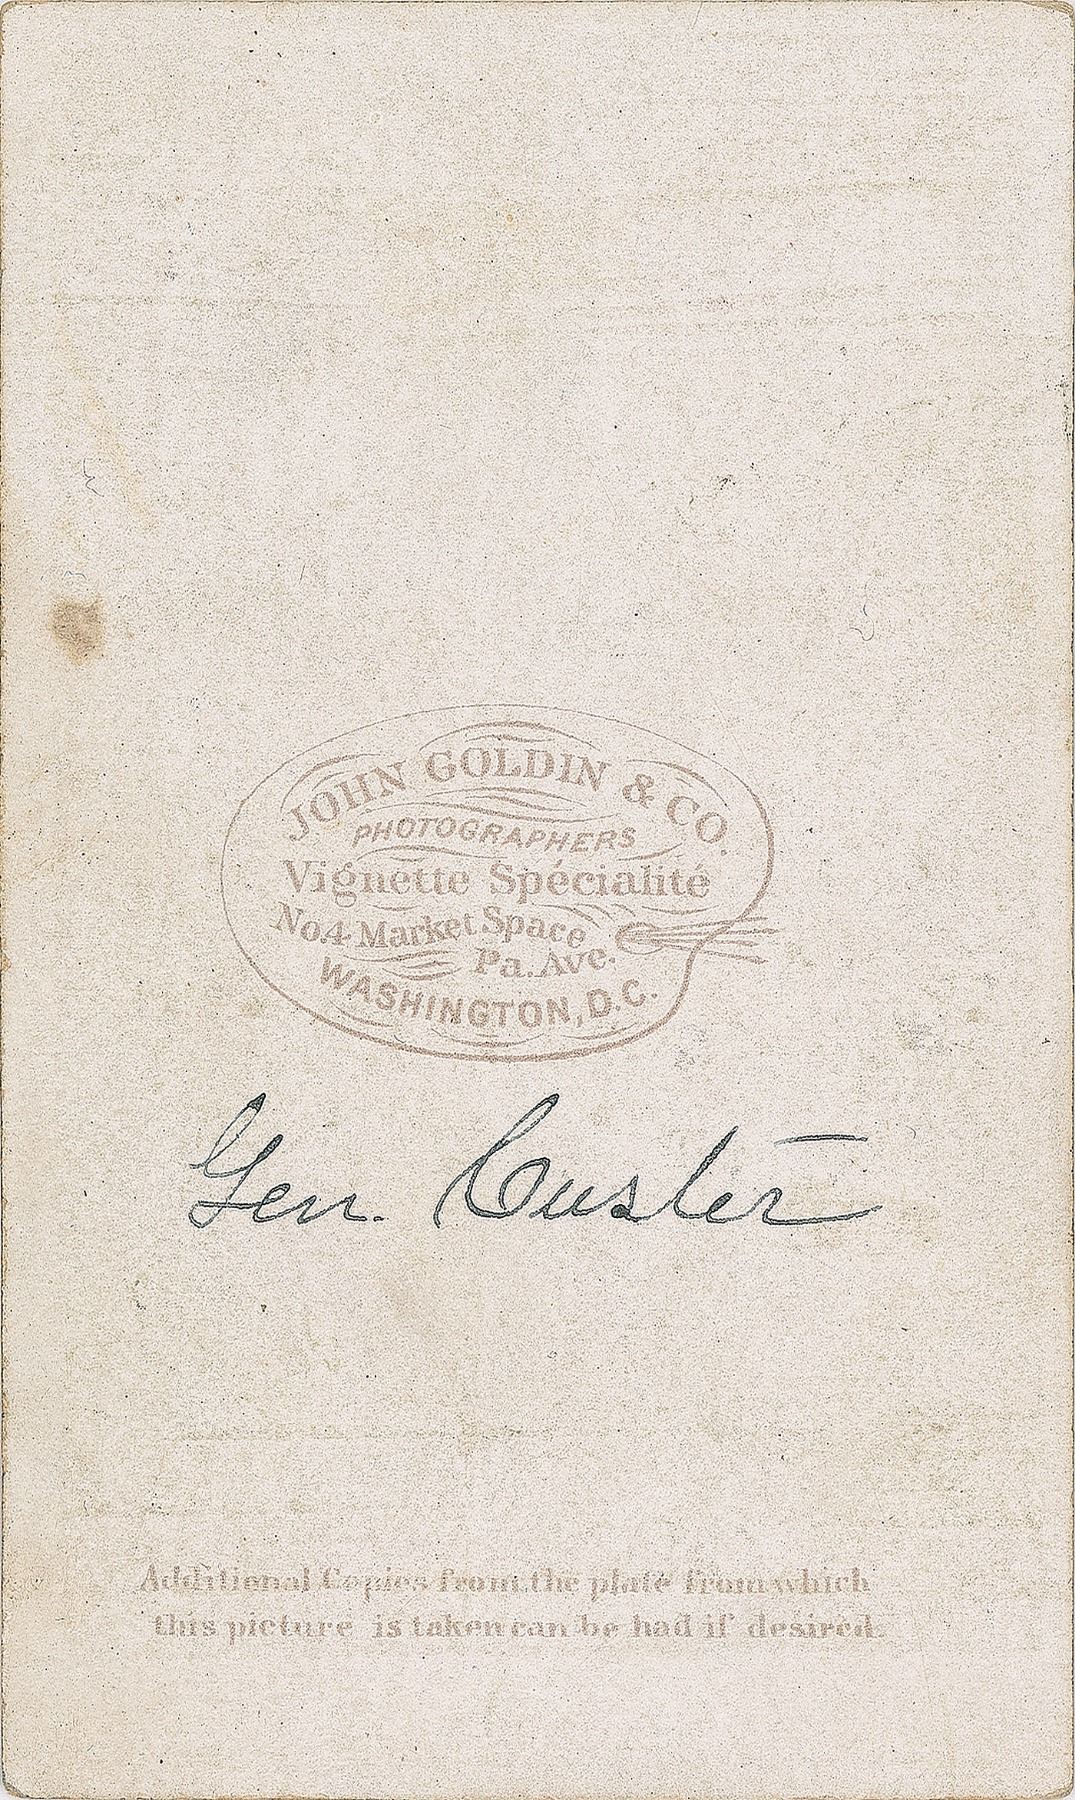 JOHN GOLDIN & CO.
PHOTOGRAPHERS
Vignette Spécialité
No.4 Market Space
Pa. Ave.
WASHINGTON, D.C.
Gen. Custer
Additional Copies from the plate from which
this picture is taken can be had if desired.